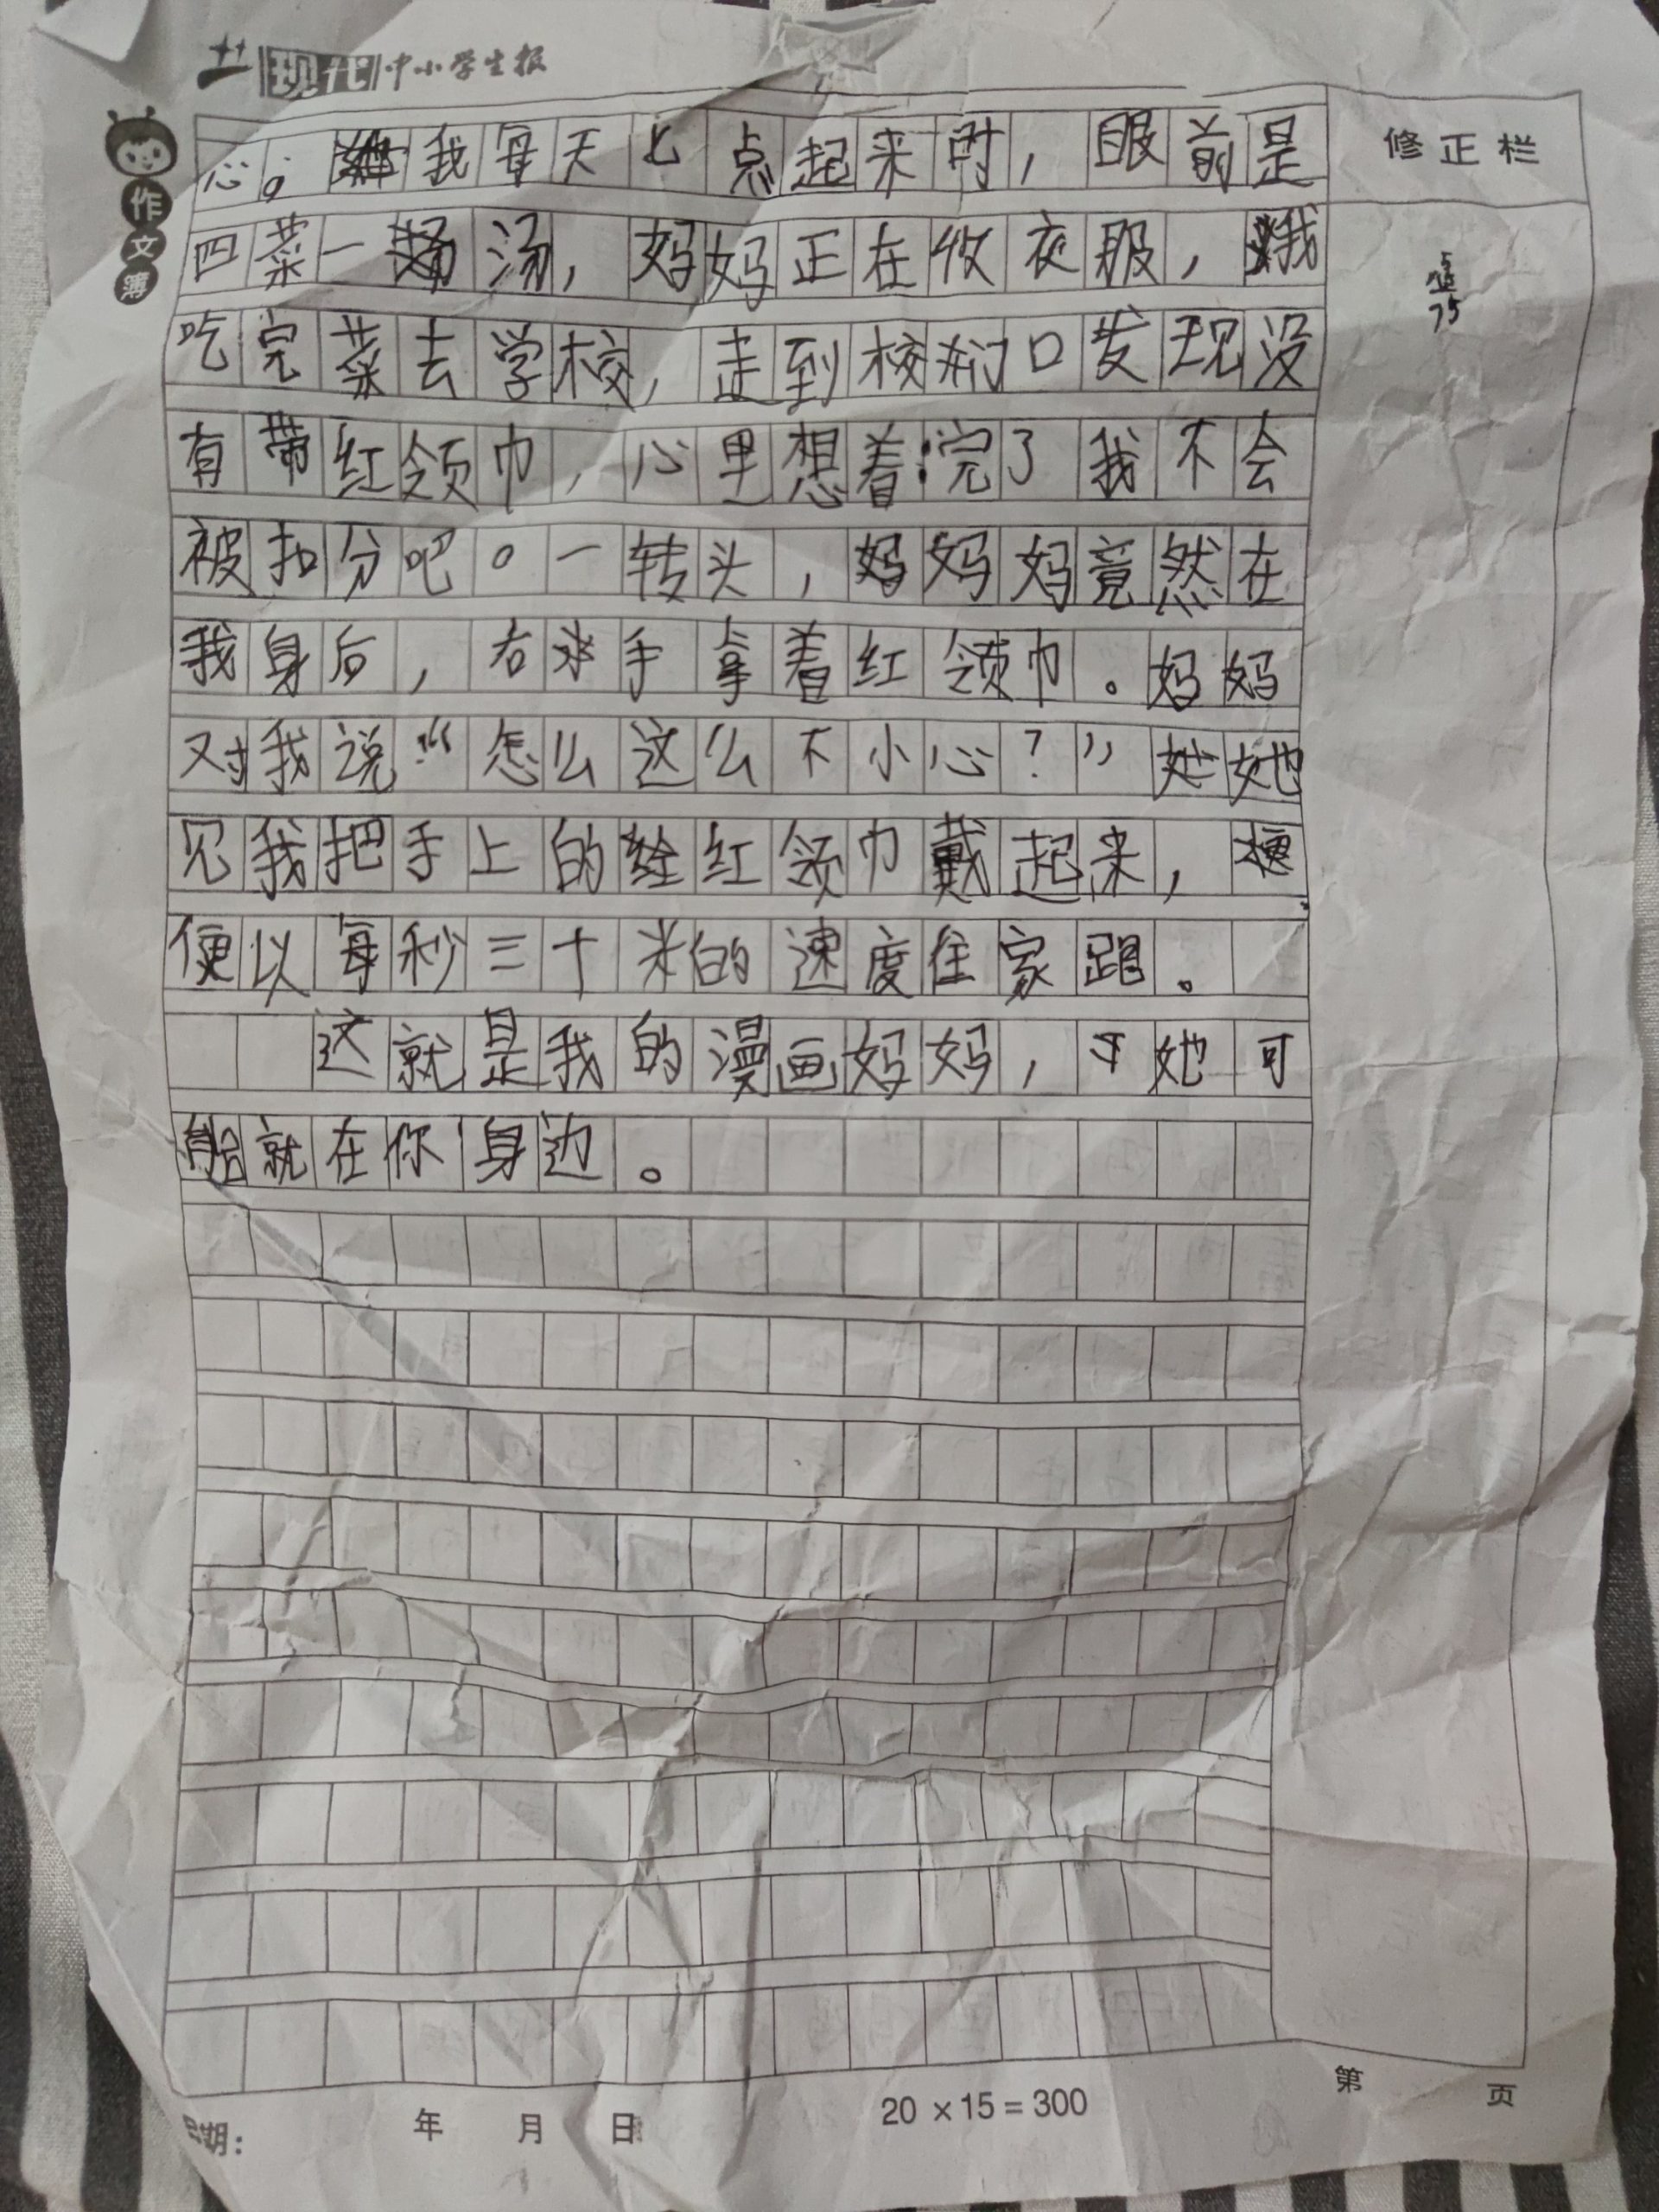 现代中小学生报
作文簿
修正栏
心。我每天七点起来时，眼前是
四菜一汤，妈妈正在收衣服，我
吃完菜去学校，走到校门口发现没
有带红领巾，心里想着：完了我不会
被扣分吧。一转头，妈妈妈竟然在
我身后，右手拿着红领巾。妈妈
对我说：“怎么这么不小心？”她
见我把手上的红领巾戴起来，
便以每秒三十米的速度往家跑。
这就是我的漫画妈妈，她可
能就在你身边。
日期： 年 月 日
20×15=300
第 页